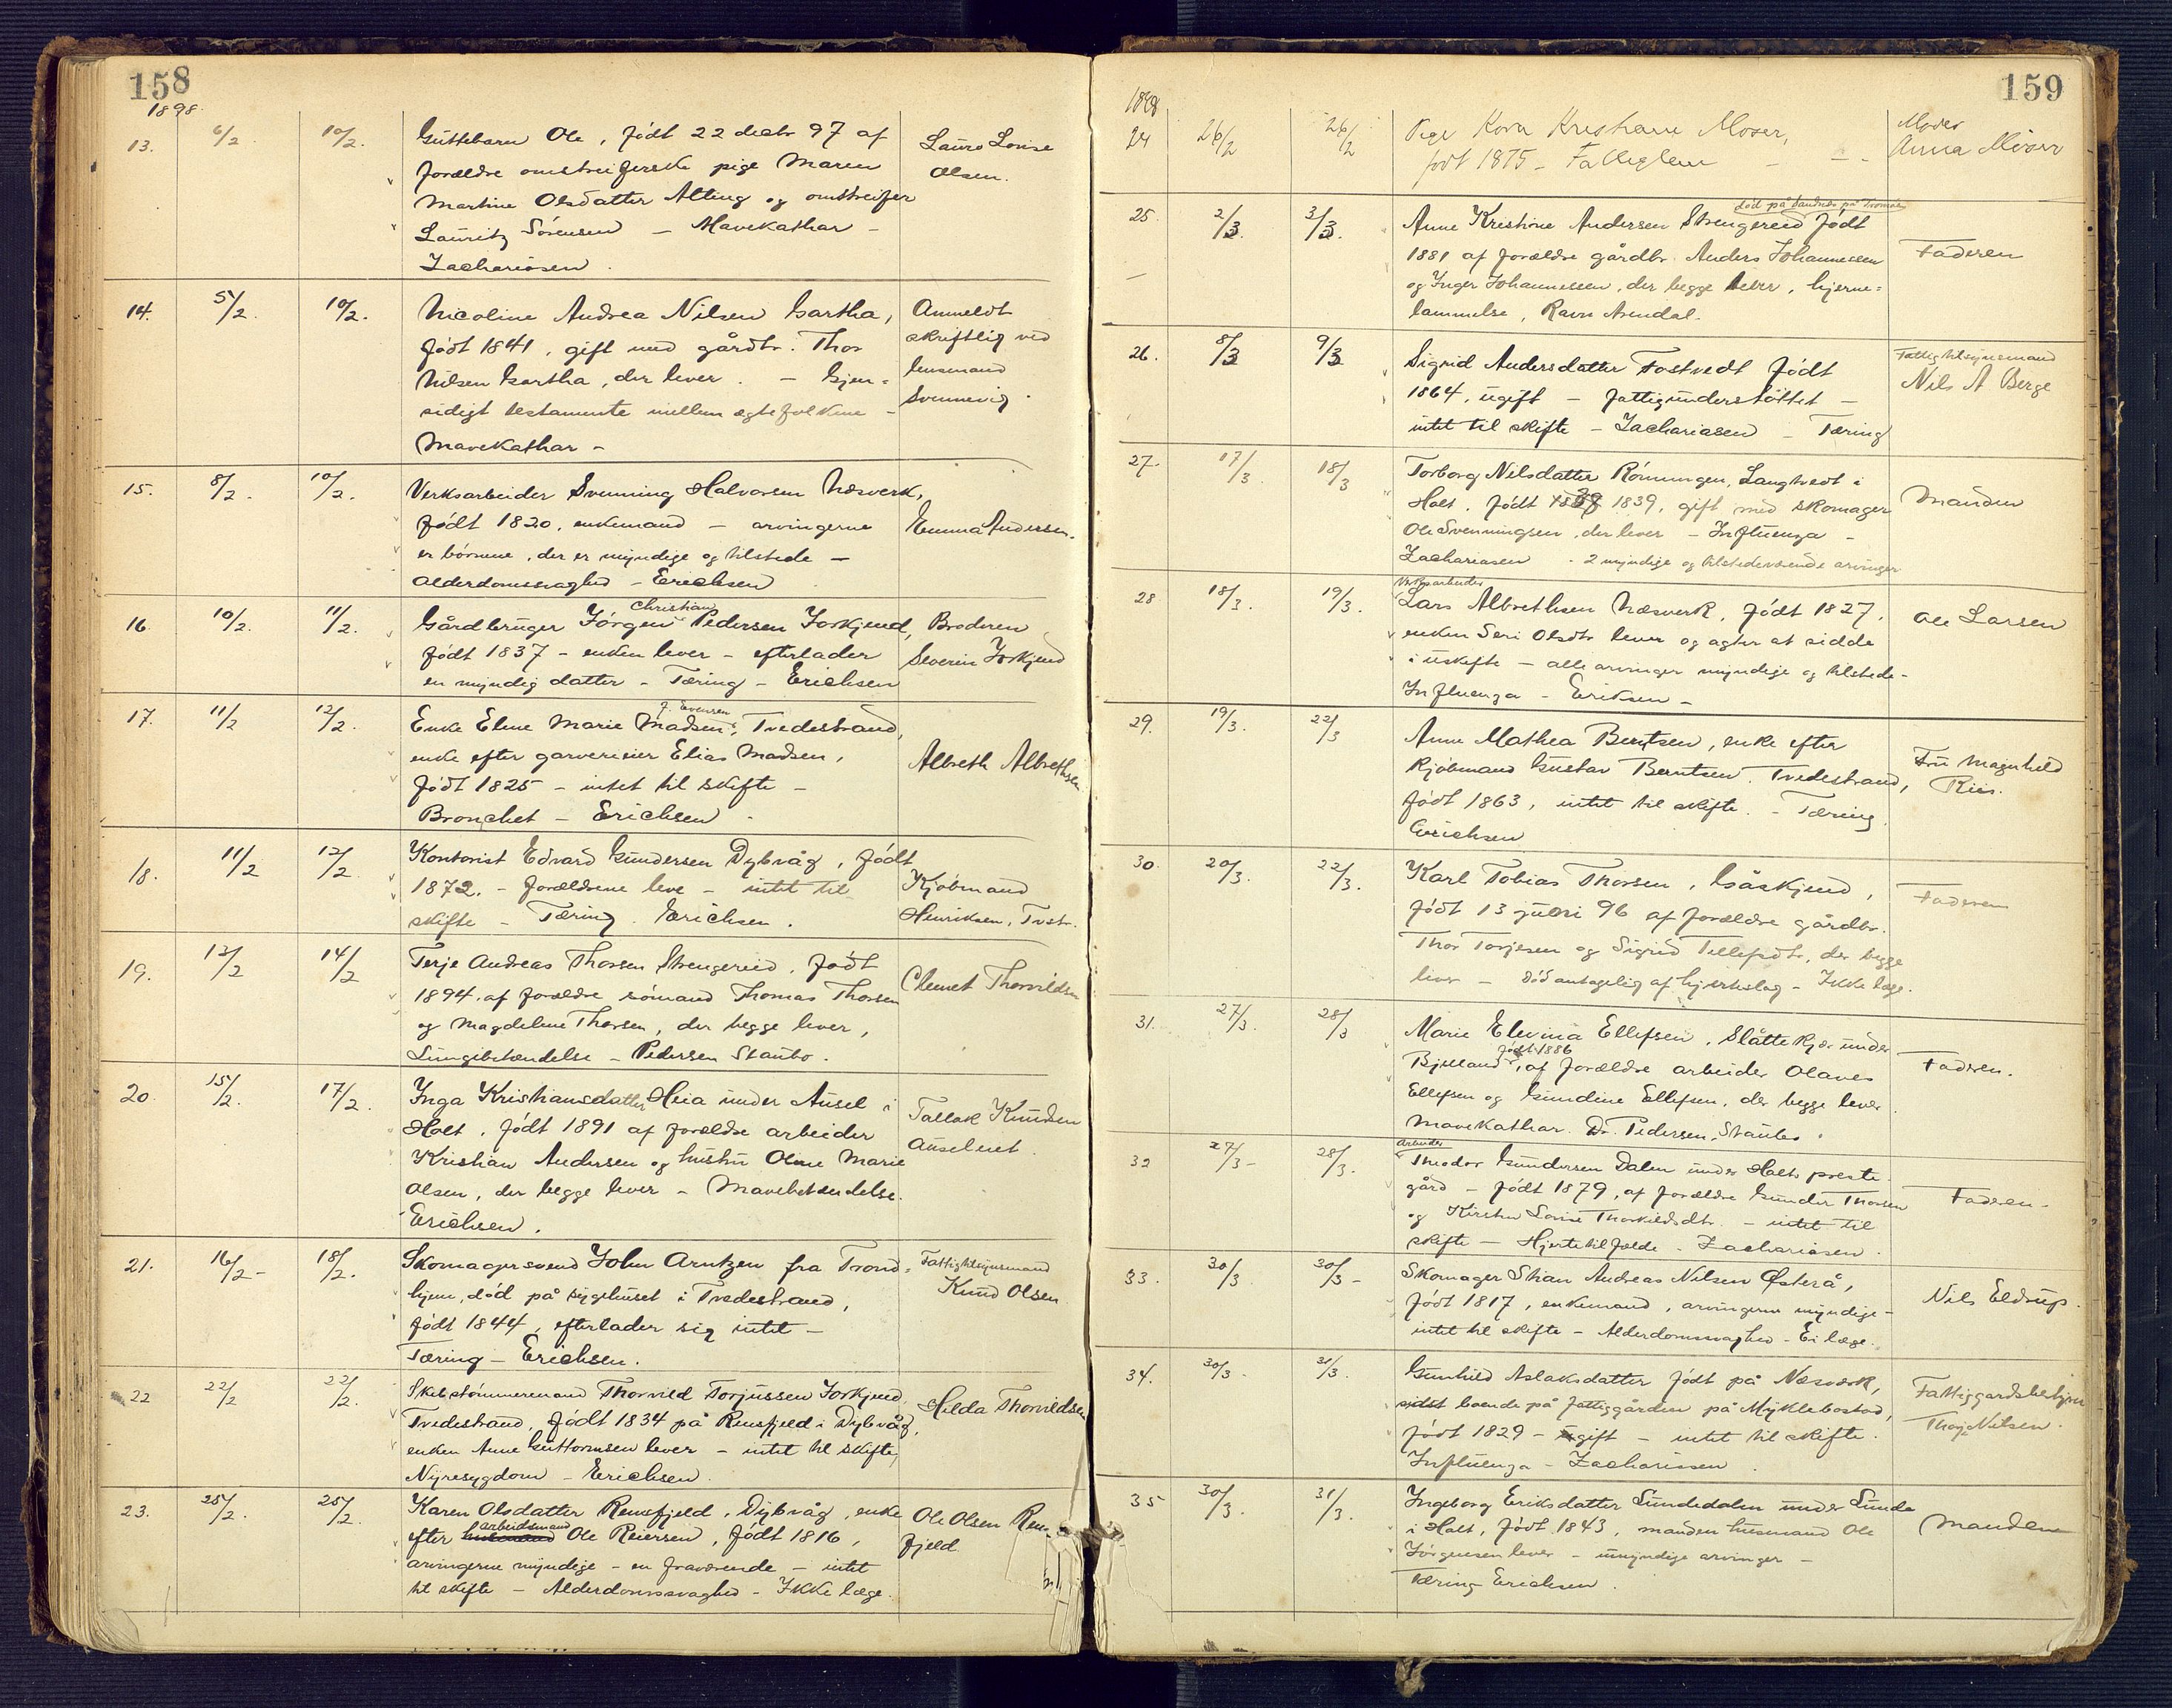 158
1898.
13. 6/2 10/2. Guttebarn Ole, født 22 decbr 97 af
forældre omstreiferske pige Maren
Martine Olsdatter Alting og omstreifer
Lauritz Sörensen – Mavekathar –
Zachariasen.
Laura Lovise
Olsen.
14. 5/2. 10/2. Nicoline Andrea Nilsen Gartha,
født 1841, gift med gårdbr. Thor
Nilsen Gartha, der lever. – Gjen-
sidigt testamente mellem ægtefolkene –
Mavekathar –
Anmeldt
skriftlig ved
lensmand
Svennevig.
15. 8/2. 10/2. Verksarbeider Svenning Halvorsen Næsverk,
født 1820, enkemand – arvingerne
er börnene, der er myndige og tilstede –
Alderdomssvaghed – Erichsen
Emma Andersen.
16. 10/2. 11/2. Gårdbruger Jörgen Christian Pedersen Forkjend,
født 1837 – enken lever – efterlader
en myndig datter – Tæring – Erichsen
Broderen
Severin Forkjend
17. 11/2 12/2. Enke Eline Marie Madsen, f. Evensen, Tvedestrand,
enke efter garversvend Elias Madsen,
født 1825 – intet til skifte –
Bronchet – Erichsen
Albreth Albrethsen
18. 11/2 12/2 Kontorist Edvard Gundersen Dybvåg, født
1872. – forældrene leve – intet til
skifte – Tæring. Erichsen.
Kjøbmand
Henriksen, Tvstr.
19. 13/2 14/2 Terje Andreas Thorsen Strengereid, født
1894, af forældre sömand Thomas Thorsen
og Magdelene Thorsen, der begge lever,
Lungebetændelse – Pedersen Staubo.
Clemet Thorvildsen
20 15/2. 17/2. Inga Kristiansdatter Heia under Ausel i
Holt, født 1891 af forældre arbeider
Kristian Andersen og hustru Oline Marie
Olsen, der begge lever – Mavebetændelse.
Erichsen.
Tallak Knudsen
Auselnet.
21. 16/2 – 18/2. Skomagersvend John Arntzen fra Trond-
hjem, död på sygehuset i Tvedestrand,
født 1844, efterlader sig intet –
Tæring – Erichsen.
Fattigtilsynsmand
Knud Olsen
22 22/2 22/2. Skibstömmermand Thorvild Torjussen Forkjend,
Tvedestrand, født 1834 på Rensfjeld i Dybvåg,
enken Anne Guttormsen lever – intet til skifte,
Nyresygdom – Erichsen.
Hilda Thorvildsen
23. 25/2. 25/2. Karen Olsdatter Rensfjeld, Dybvåg, enke
efter arbeidsmand Ole Reiersen, født 1816,
arvingerne myndige – en fraværende – intet
til skifte – Alderdomssvaghed – Ikke læge.
Ole Olsen Rens-
fjeld.
159
1898
24 26/2 26/2 Pige Kora Kristiane Moser,
født 1875 –
Moder
Anna Moser
25. 2/3. 3/3. død på Sandnes på Tromøe
Anne Kristine Andersen Strengereid født
1881 af forældre gårdbr. Anders Johannessen
og Inger Johannessen, der begge lever, hjerne-
lammelse, Ravn Arendal.
Faderen
26. 8/3 9/3 Sigrid Andersdatter Fostvedt født
1864, ugift – fattigunderstöttet –
intet til skifte – Zachariasen – Tæring
Fattigtilsynsmand
Nils A Berge
27. 17/3. 18/3 Torborg Nilsdatter Rönningen, Langtvedt i
Holt. født 1839, gift med skomager
Ole Svenningsen, der lever – Influenza –
Zachariasen – 2 myndige og tilstedeværende arvinger
Manden
28 18/3. 19/3. Verksarbeider
Lars Albrethsen Næsverk, født 1827,
enken Seri Olsdtr lever og agter at sidde
i uskifte – alle arvinger myndige og tilstede –
Influenza – Eriksen –
Ole Larsen
29. 19/3. 22/3 Anne Mathea Berntsen, enke efter
kjöbmand Gustav Berntsen. Tvedestrand,
født 1863, intet til skifte. – Tæring
Erichsen
Fru Magnhild
Riis.
30. 20/3. 22/3. Karl Tobias Thorsen, Gåskjend,
født 13 juni 96 af forældre gårdbr.
Thor Torjesen og Sigrid Tellefsdtr, der begge
lever – död antagelig af hjerteslag – Ikke læge.
Faderen
31. 27/3. 28/3 Marie Elevina Ellefsen, Slåttekjær under
Bjelland, født 1886, af forældre arbeider Olaves
Ellefsen og Gundine Ellefsen, der begge lever.
Mavekathar. Dr. Pedersen, Staubo.
Faderen.
32 27/3 – 28/3. Arbeider
Theodor Gundersen Dalen under Holts preste-
gård – født 1879, af forældre Gunder Thorsen
og Kirstin Lovise Thorkildsdtr. – intet til
skifte – Hjertetilfælde – Zachariasen.
Faderen –
33. 30/3. 30/3 – Skomager Stian Andreas Nilsen Østerå,
født 1817, enkemand, arvingerne myndige –
intet til skifte – Alderdomssvaghed – Ei læge.
Nils Eldrup.
34. 30/3 – 31/3. Gunhild Aslaksdatter født på Næsverk,
sidst boende på fattiggården på Myklebostad,
født 1829 – ugift – intet til skifte.
Influenza – Zachariasen.
Fattiggardsbestyrer
Thorje Nilsen.
35 30/3. 31/3. Ingeborg Eriksdatter Lundedalen under Lunde
i Holt, født 1843, manden husmand Ole
Jörgensen lever – umyndige arvinger –
Tæring Erichsen.
Manden